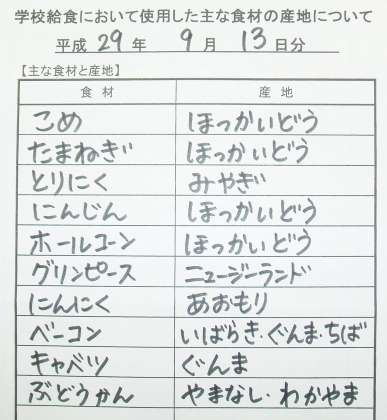 学校給食において使用した主な食材の産地について
平成 29 年 9 月 13 日分
【主な食材と産地】
食材 産地
こめ ほっかいどう
たまねぎ ほっかいどう
とりにく みやぎ
にんじん ほっかいどう
ホールコーン ほっかいどう
グリンピース ニュージーランド
にんにく あおもり
ベーコン いばらき・ぐんま・ちば
キャベツ ぐんま
ぶどうかん やまなし・わかやま